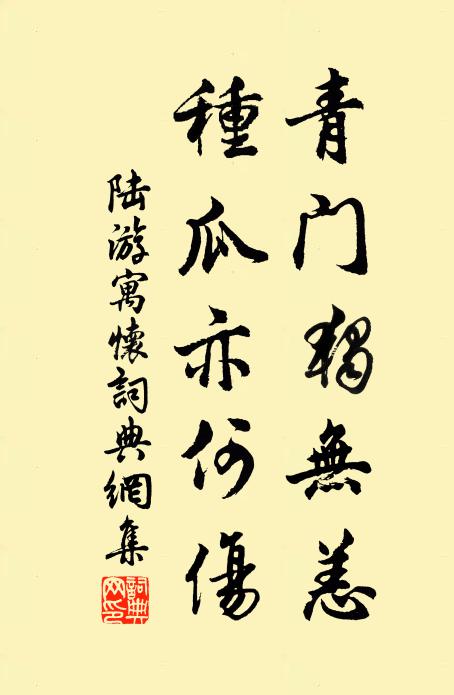 青门獨無恙
種瓜亦何傷
陆游寓懷詞典網集
詞典网印